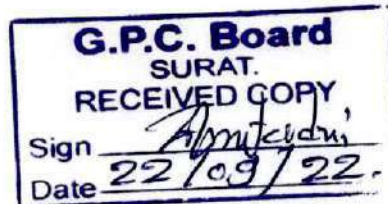 G.P.C. Board
SURAT.
RECEIVED COPY
Sign
Date 22/09/22.